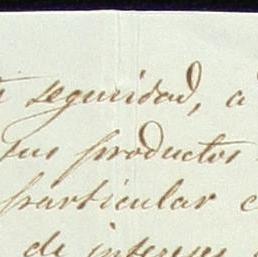 seguridad, a
sus productos
particular
de intereses